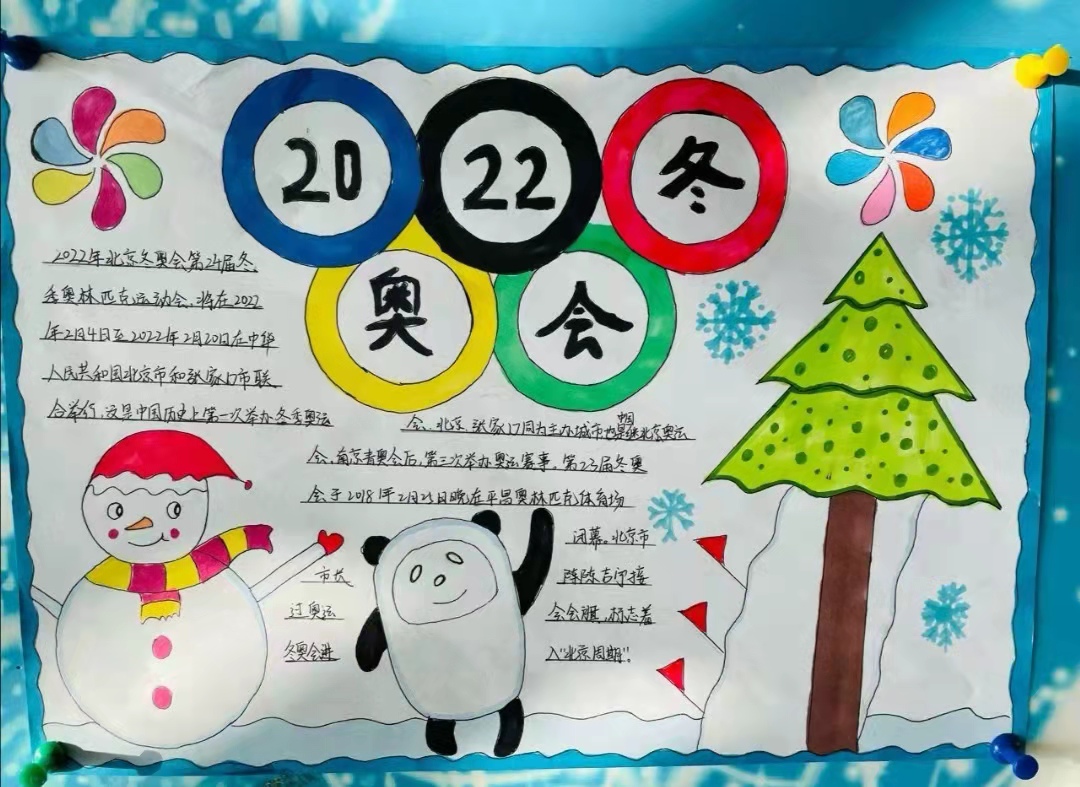 2022冬
奥会
2022年北京冬奥会第24届冬
季奥林匹克运动会,将在2022
年2月4日至2022年2月20日在中华
人民共和国北京市和张家口市联
合举行,这是中国历史上第一次举办冬季奥运
会,北京,张家口同为主办城市也是中国继北京奥运
会,南京青奥会后,第三次举办奥运赛事。第23届冬奥
会于2018年2月25日晚在平昌奥林匹克体育场
闭幕。北京市
市长 陈陈吉宁接
过奥运 会会旗,标志着
冬奥会进 入"北京周期"。